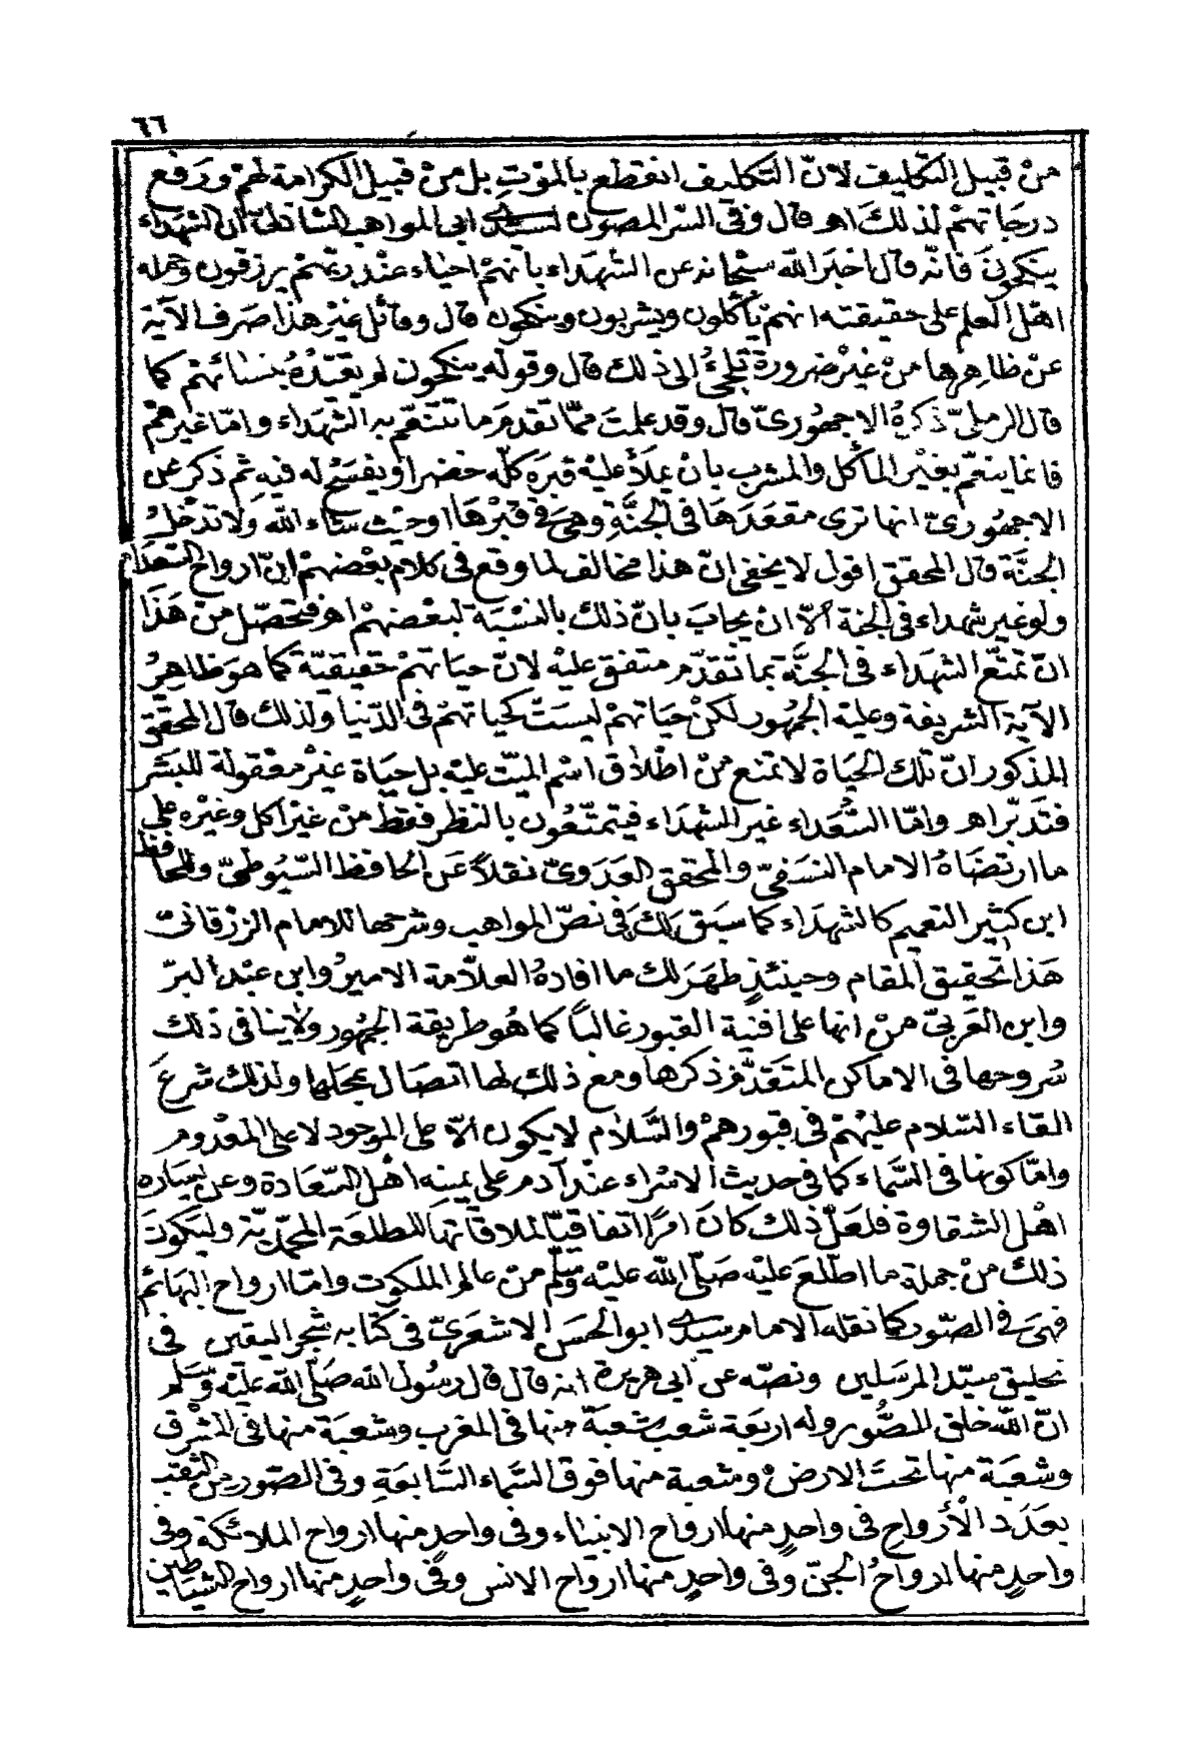 ٦٦
من قبيل التكليف لانّ التكليف انقطع بالموت بل من قبيل الكرامة لهم ورفع
درجاتهم لذلك اهـ قال وفى السر المصون لسيدى ابى المواهب الشاذلىّ ان الشهداء
ينكحون فانّه قال اخبر الله سبحانه عن الشهداء بانهم احياء عند ربهم يرزقون وحمله
اهل العلم على حقيقته انهم يأكلون ويشربون وينكحون قال وقائل غير هذا صرف الآية
عن ظاهرها من غير ضرورة تلجئ الى ذلك قال وقوله ينكحون لم يقيّده بنسائهم كما
قال الرملىّ ذكره الاجهورىّ قال وقد علمت ممّا تقدم ما تتنعّم به الشهداء وامّا غيرهم
فانما يتنعّم بغير المأكل والمشرب بان يملأ عليه قبره كلّه خضرا او يفسح له فيه ثم ذكر عن
الاجهورىّ انها ترى مقعدها فى الجنّة وهى فى قبرها او حيث شاء الله ولا تدخل
الجنّة قال المحقق اقول لا يخفى انّ هذا مخالف لما وقع فى كلام بعضهم انّ ارواح السعداء
ولو غير شهداء فى الجنة الّا ان يجاب بانّ ذلك بالنسبة لبعضهم اهـ فتحصّل من هذا
انّ تمتّع الشهداء فى الجنّة بما تقدّم متفق عليه لانّ حياتهم حقيقيّة كما هو ظاهر
الآية الشريفة وعليه الجمهور لكن حياتهم ليست كحياتهم فى الدّنيا ولذلك قال المحقّق
المذكور انّ تلك الحياة لا تمنع من اطلاق اسم الميّت عليه بل حياة غير معقولة للبشر
فتدبّر اهـ وامّا السّعداء غير الشهداء فيتمتّعون بالنظر فقط من غير اكل وغيره على
ما ارتضاه الامام النسفىّ والمحقق العدوىّ نقلاً عن الحافظ السّيوطىّ وللحافظ
ابن كثير التعميم كالشهداء كما سبق لك فى نصّ المواهب وشرحها للامام الزرقانىّ
هذا تحقيق المقام وحينئذ ظهر لك ما افاده العلّامة الامير وابن عبد البرّ
وابن العربىّ من انها على افنية القبور غالباً كما هو طريقة الجمهور ولا ينافى ذلك
سُروحها فى الاماكن المتقدّم ذكرها ومع ذلك لها اتصال بمحلها ولذلك شرع
القاء السّلام عليهم فى قبورهم والسّلام لا يكون الّا على الموجود لا على المعدوم
وامّا كونها فى السّماء كما فى حديث الاسراء عند آدم على يمينه اهل السّعادة وعن يساره
اهل الشقاوة فلعلّ ذلك كان امرًا اتفاقيّا لملاقاتها للطلعة المحمّديّة وليكون
ذلك من جملة ما اطّلع عليه صلّى الله عليه وسلّم من عالم الملكوت وامّا ارواح البهائم
فهى فى الصّور كما نقله الامام سيدى ابو الحسن الاشعرىّ فى كتابه شجر اليقين فى
تخليق سيّد المرسلين ونصّه عن ابى هريرة انه قال قال رسول الله صلّى الله عليه وسلم
انّ الله خلق الصّور وله اربعة شعب شعبة منها فى المغرب وشعبة منها فى المشرق
وشعبة منها تحت الارض وشعبة منها فوق السّماء السّابعة وفى الصّور من الثقب
بعدد الأرواح فى واحدٍ منها ارواح الانبياء وفى واحدٍ منها ارواح الملائكة وفى
واحدٍ منها ارواح الجنّ وفى واحدٍ منها ارواح الانس وفى واحدٍ منها ارواح الشياطين